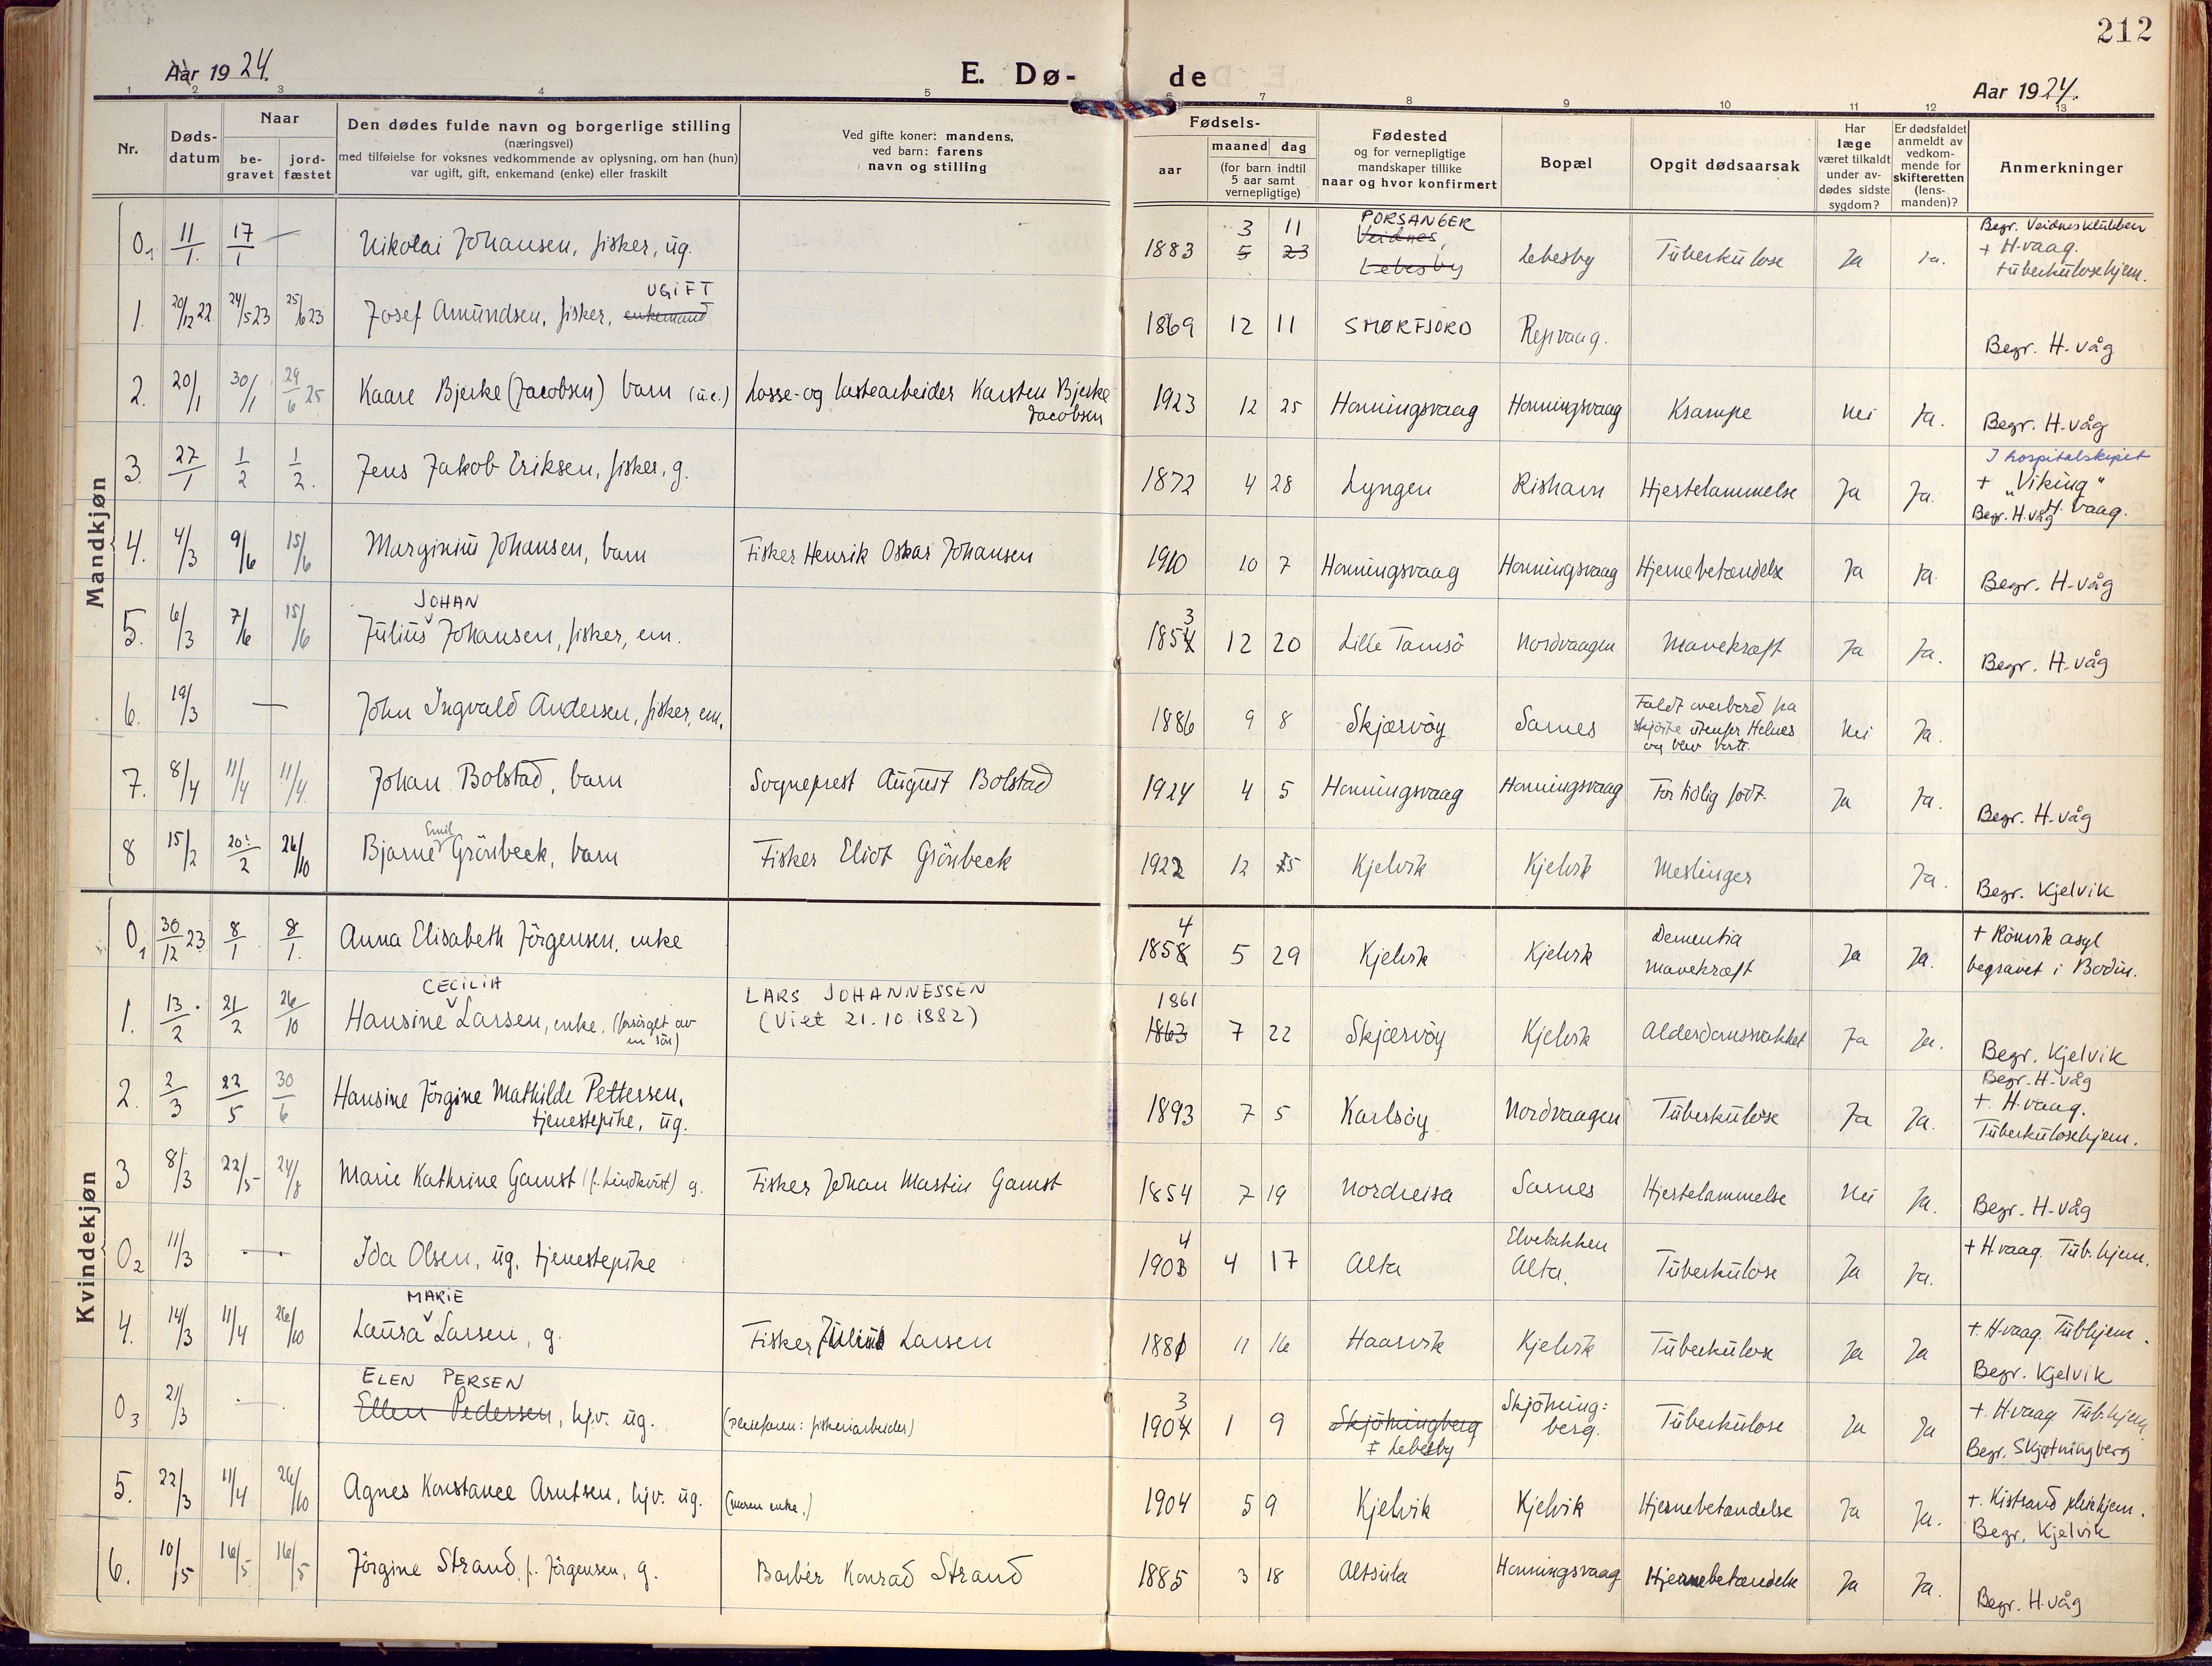 212
Aar 1924.
E. Dø- de
Aar 1924.
1 2 3 4 5 6 7 8 9 10 11 12 13
Nr.
Døds-
datum
Naar
be-
gravet
jord-
fæstet
Den dødes fulde navn og borgerlige stilling
(næringsvei)
med tilføielse for voksnes vedkommende av oplysning, om han (hun)
var ugift, gift, enkemand (enke) eller fraskilt
Ved gifte koner: mandens,
ved barn: farens
navn og stilling
Fødsels-
aar
maaned dag
(for barn indtil
5 aar samt
vernepligtige)
Fødested
og for vernepligtige
mandskaper tillike
naar og hvor konfirmert
Bopæl
Opgit dødsaarsak
Har
læge
været tilkaldt
under av-
dødes sidste
sygdom?
Er dødsfaldet
anmeldt av
vedkom-
mende for
skifteretten
(lens-
manden)?
Anmerkninger
Mandkjøn
3 11 PORSANGER Begr. Veidnesklubben
0₁ 11/1 17/1 — Nikolai Johansen, fisker, ug. 1883 5 23 Veidnes, Lebesby Lebesby Tuberkulose Ja Ja. + H.vaag.
tuberkulosehjem.
UGIFT
1. 20/12 22 24/5 23 25/6 23 Josef Amundsen, fisker, enkemand 1869 12 11 SMØRFJORD Repvaag. Begr. H-våg
2. 20/1 30/1 29/6 25 Kaare Bjerke (Jacobsen) barn (u.e.) Losse- og lastearbeider Karsten Bjerke
Jacobsen 1923 12 25 Honningsvaag Honningsvaag Krampe Nei Ja. Begr. H-våg
I hospitalskipet
3. 27/1 1/2 1/2. Jens Jakob Eriksen, fisker, g. 1872 4 28 Lyngen Rishavn Hjertelammelse Ja Ja. + „Viking"
H.vaag.
Begr. H.våg
4. 4/3 9/6 15/6 Marginius Johansen, barn Fisker Henrik Oskar Johansen 1910 10 7 Honningsvaag Honningsvaag Hjernebetændelse Ja Ja. Begr. H-våg
JOHAN 3
5. 6/3 7/6 15/6 Julius Johansen, fisker, em. 1854 12 20 Lille Tamsö Nordvaagen Mavekræft Ja Ja. Begr. H-våg
6. 19/3 — John Ingvald Andersen, fisker, em. 1886 9 8 Skjærvöy Sarnes Faldt overbord fra
skjöite utenfor Helnes
og blev borte. Nei Ja.
7. 8/4 11/4 11/4. Johan Bolstad, barn Sogneprest August Bolstad 1924 4 5 Honningsvaag Honningsvaag For tidlig födt. Ja Ja. Begr. H-våg
Emil
8 15/2 20/2 26/10 Bjarne Grönbeck, barn Fisker Eliot Grönbeck 1922 12 15 Kjelvik Kjelvik Meslinger Ja. Begr. Kjelvik
Kvindekjøn
4
0₁ 30/12 23 8/1 8/1. Anna Elisabeth Jörgensen, enke 1858 5 29 Kjelvik Kjelvik Dementia
Mavekræft Ja Ja. + Rönvik asyl
begravet i Bodin.
CECILIA LARS JOHANNESSEN 1861
1. 13/2 21/2 26/10 Hansine Larsen, enke. (forsörget av
en sön) (Viet 21.10.1882) 1863 7 22 Skjærvöy Kjelvik Alderdomssvakhet Ja Ja. Begr. Kjelvik
Begr. H-våg
2. 2/3 22/5 30/6 Hansine Jörgine Mathilde Pettersen,
tjenestepike, ug. 1893 7 5 Karlsöy Nordvaagen Tuberkulose Ja Ja. +. H.vaag.
Tuberkulosehjem.
3 8/3 22/5 24/8 Marie Kathrine Gamst (f. Lindkvist) g. Fisker Johan Martin Gamst 1854 7 19 Nordreisa Sarnes Hjertelammelse Nei Ja. Begr. H-våg
4 Elvebakken
0₂ 11/3 — Ida Olsen, ug. tjenestepike 1903 4 17 Alta Alta. Tuberkulose Ja Ja. + H.vaag. Tub.hjem.
MARIE
4. 14/3 11/4 26/10 Laura Larsen, g. Fisker Julius Larsen 1881 11 16 Haasvik Kjelvik Tuberkulose Ja Ja +. H.vaag. Tub.hjem.
Begr. Kjelvik
ELEN PERSEN 3
0₃ 21/3 — Ellen Pedersen, hjv. ug. (pleiefaren: fiskeriarbeider) 1904 1 9 Skjötningberg
I Lebesby Skjötning=
berg. Tuberkulose Ja Ja +. H.vaag Tub.hjem.
Begr. Skjøtningberg
5. 22/3 11/4 26/10 Agnes Konstance Arntsen, hjv. ug. (moren enke.) 1904 5 9 Kjelvik Kjelvik Hjernebetændelse Ja Ja. +. Kistrand pleiehjem.
Begr. Kjelvik
6. 10/5 16/5 16/5 Jörgine Strand, f. Jörgensen, g. Barbér Konrad Strand 1885 3 18 Altsula Honningsvaag Hjernebetændelse Ja Ja. Begr. H-våg